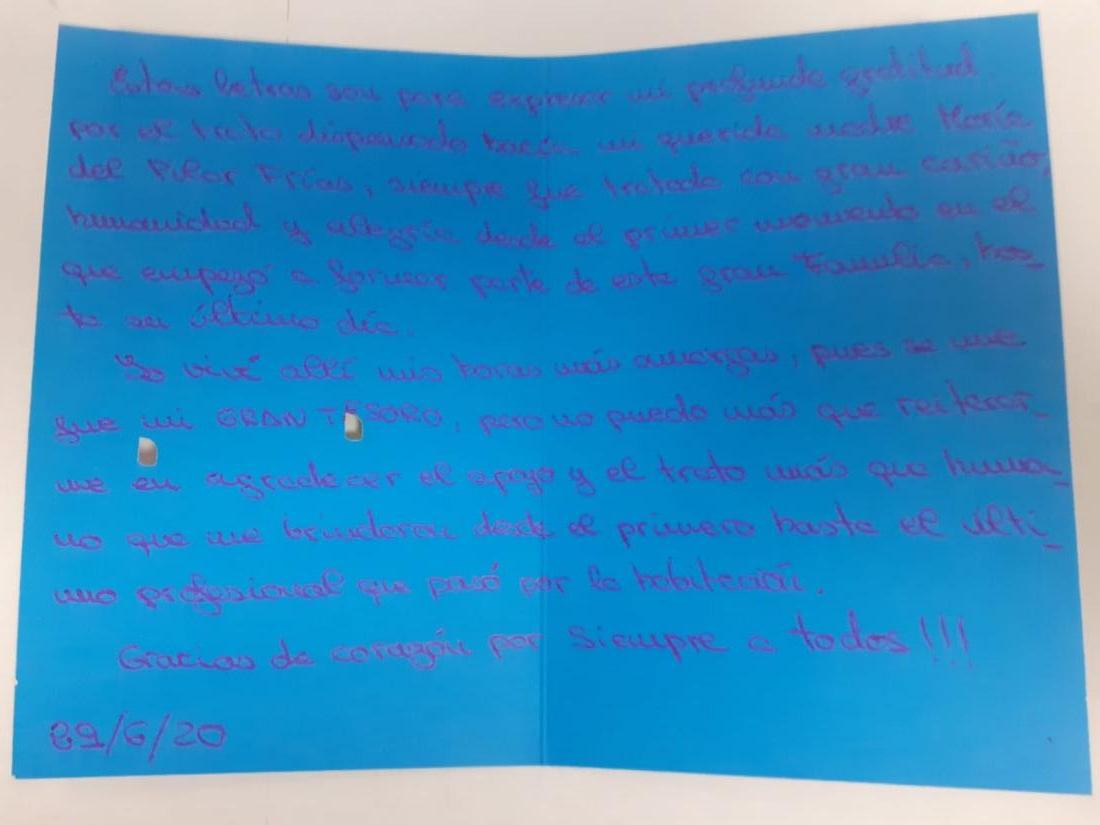 Estas letras son para expresar mi profunda gratitud
por el trato dispensado hacia mi querida madre María
del Pilar Frías, siempre fue tratada con gran cariño,
humanidad y alegría desde el primer momento en el
que empezó a formar parte de esta gran Familia, has_
ta su último día.
Yo viví allí mis horas más amargas, pues se me
fue mi GRAN TESORO, pero no puedo más que reiterar_
me en agradecer el apoyo y el trato más que huma_
no que me brindaron desde el primero hasta el últi_
mo profesional que pasó por la habitación.
Gracias de corazón por Siempre a todos!!!
/6/20